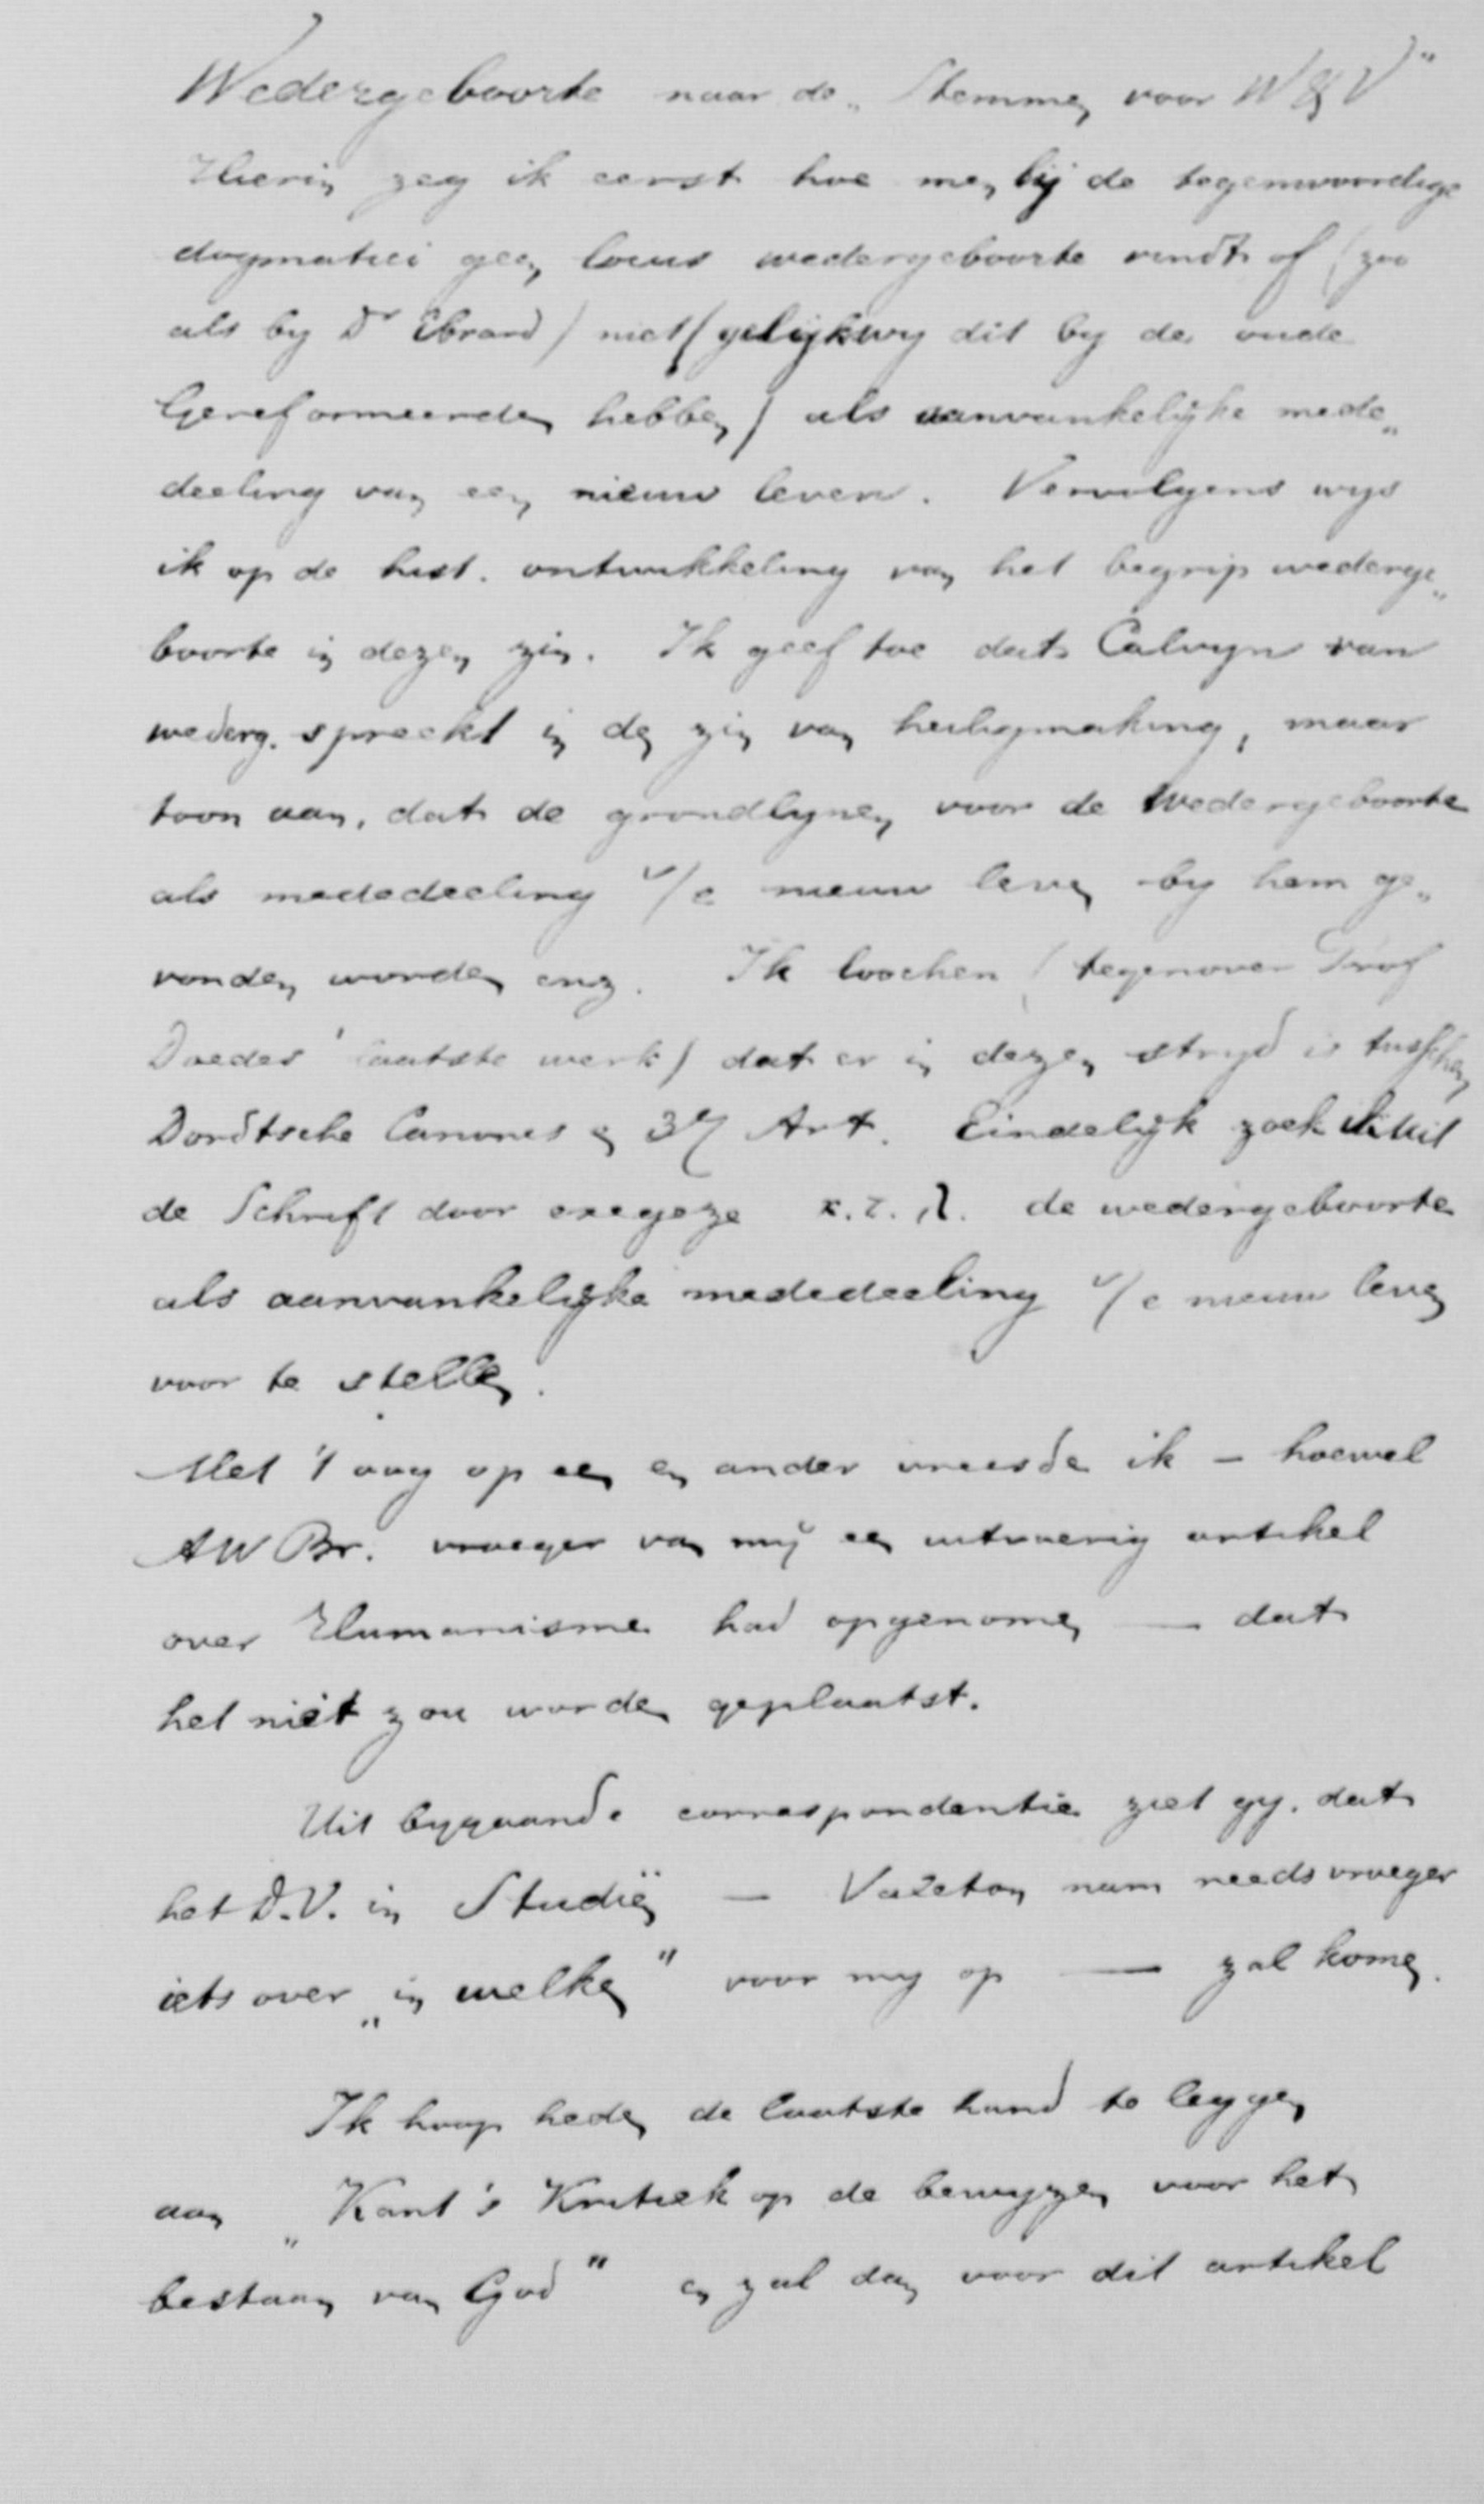 Wedergeboorte naar de „Stemmen voor W & V"
Hierin zeg ik eerst hoe men bij de tegenwoordige
dogmatici geen locus wedergeboorte vindt of (zoo
als by Dr Ebrard) niet (gelijk wy dit by de oude
Gereformeerden hebben) als aanvankelijke mede„
deeling van een nieuw leven. Vervolgens wys
ik op de hist. ontwikkeling van het begrip wederge„
boorte in dezen zin. Ik geef toe dat Calvyn van
wederg. spreekt in den zin van heiligmaking, maar
toon aan, dat de grondlynen voor de Wedergeboorte
als mededeeling v/e nieuw leven by hem ge„
vonden worden enz. Ik loochen (tegenover Prof
Doedes' laatste werk) dat er in dezen stryd is tusschen
Dordtsche Canones en 37 Art. Eindelijk zoek ik uit
de Schrift door exegeze κ.τ.λ. de wedergeboorte
als aanvankelijke mededeeling v/e nieuw leven
voor te stellen.
Met 't oog op een en ander vreesde ik – hoewel
AW Br. vroeger van mij een uitvoerig artikel
over Humanisme had opgenomen — dat
het niet zou worden geplaatst.
Uit bygaande correspondentie ziet gy, dat
het D.V. in Studiën — Valeton nam reeds vroeger
iets over „in welken" voor my op — zal komen.
Ik hoop heden de laatste hand te leggen
aan „Kant's Kritiek op de bewyzen voor het
bestaan van God" en zal dan voor dit artikel